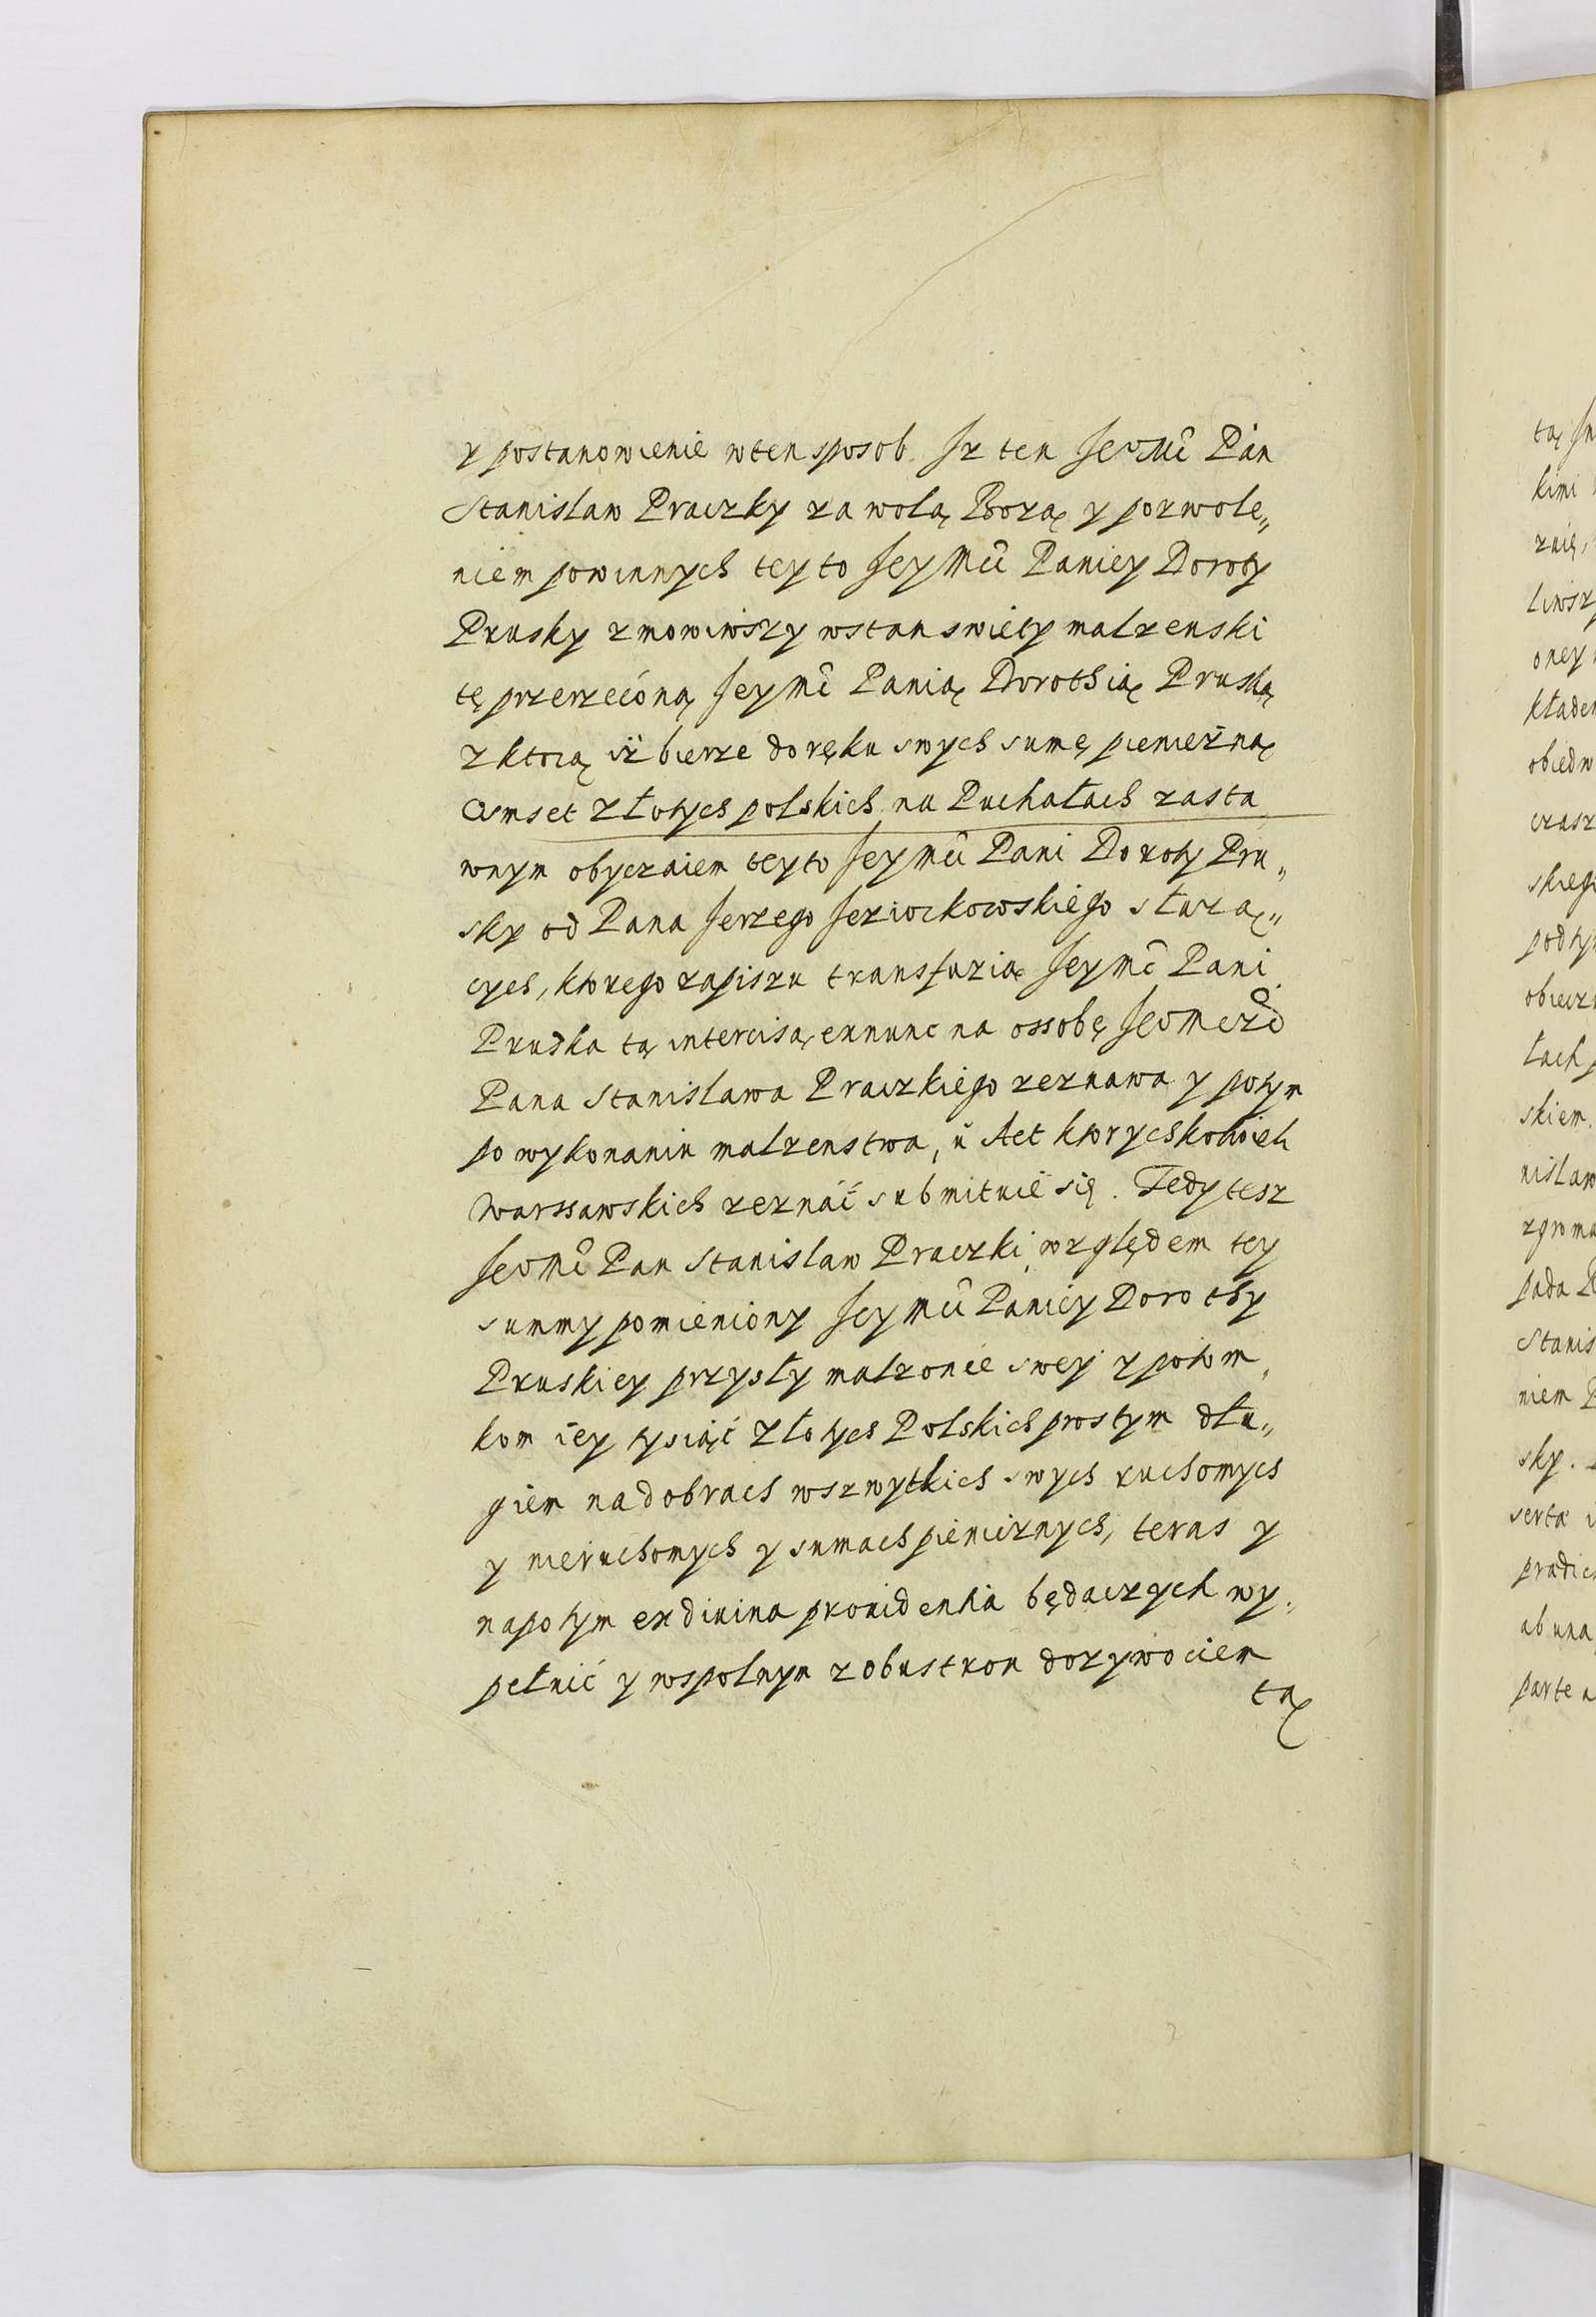 y postanowienie wten sposob. Iz ten Ieomć Pan
Stanislaw Praczky za wolą Bozą y pozwole„
niem powinnych tey to Ieymci Paniey Doroty
Prusky zmowiwszy wstan swiety malzenski
tę przerzeconą Ieymć Panią Dorothią Pruską
z ktorą iż bierze do ręku swych sumę pieniezną
osmset złotych polskich na Puchałach zasta
wnym obyczaiem tey to Ieymci Pani Doroty Pru„
sky od Pana Ierzego Ieziorkowskiego słuzą„
cych, ktorego zapiszu transfuzią Ieymć Pani
Pruska tą intercisą exnunc na ossobę Ieomczi
Pana Stanislawa Praczkiego zeznawa y potym
po wykonaniu malzenstwa, u Act ktorychkolwiek
Warssawskich zeznać submituie się. Tedy tesz
Ieomć Pan Stanislaw Praczki względem tey
summy pomieniony Ieymci Paniey Dorothy
Pruskiey przysły malzonce swey y potom„
kom iey tysiąć złotych Polskich prostym dłu„
giem na dobrach wszwytkich swych ruchomych
y nieruchomych y sumach pienieznych, teras y
napotym ex divina providentia będaczych wy„
pełnić y wspolnym z obustron dozywociem
tą
tą
kimi
znię,
liwszy
oney
kładem
obiedw
czasz
skiego
pod ty
obiecz
łach p
skiem.
nisław
zgroma
pada P
Stanis
niem P
sky.
serta
pradic
ab una
parte a